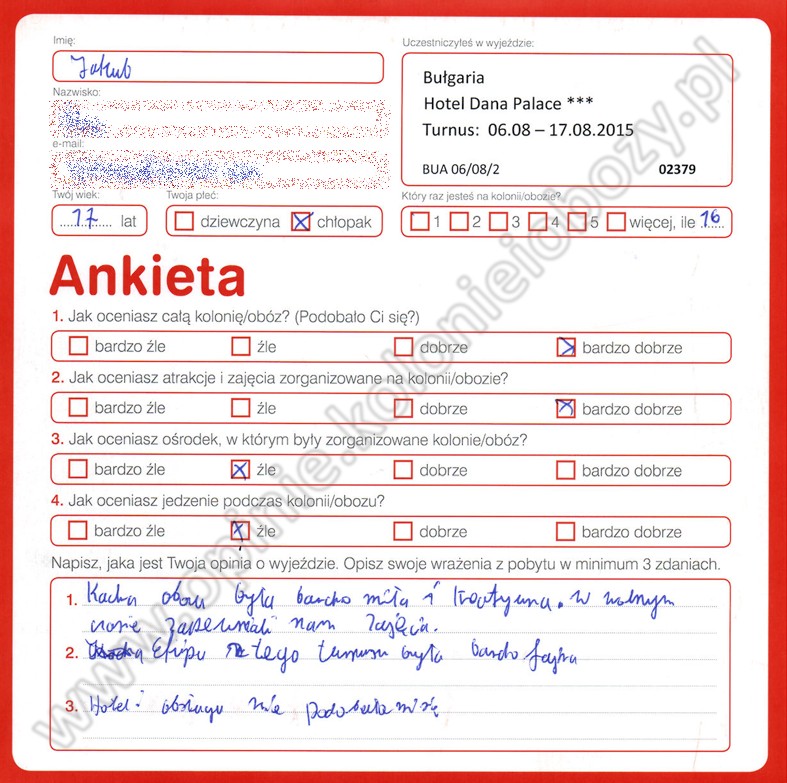 Imię:
Jakub
Uczestniczyłeś w wyjeździe:
Bułgaria
Hotel Dana Palace ***
Turnus: 06.08 – 17.08.2015
BUA 06/08/2 02379
Nazwisko:
e-mail:
Twój wiek:
17 lat
Twoja płeć:
dziewczyna chłopak
Który raz jesteś na kolonii/obozie?
1 2 3 4 5 więcej, ile 16
Ankieta
1. Jak oceniasz całą kolonię/obóz? (Podobało Ci się?)
bardzo źle źle dobrze bardzo dobrze
2. Jak oceniasz atrakcje i zajęcia zorganizowane na kolonii/obozie?
bardzo źle źle dobrze bardzo dobrze
3. Jak oceniasz ośrodek, w którym były zorganizowane kolonie/obóz?
bardzo źle źle dobrze bardzo dobrze
4. Jak oceniasz jedzenie podczas kolonii/obozu?
bardzo źle źle dobrze bardzo dobrze
Napisz, jaka jest Twoja opinia o wyjeździe. Opisz swoje wrażenia z pobytu w minimum 3 zdaniach.
1. Kadra obozu była bardzo miła i kreatywna. W wolnym
czasie zapewniali nam zajęcia.
2. Ekipa z tego turnusu była bardzo fajna
3. Hotel i obsługa nie podobała mi się
www.opinie.kolonieiobozy.pl